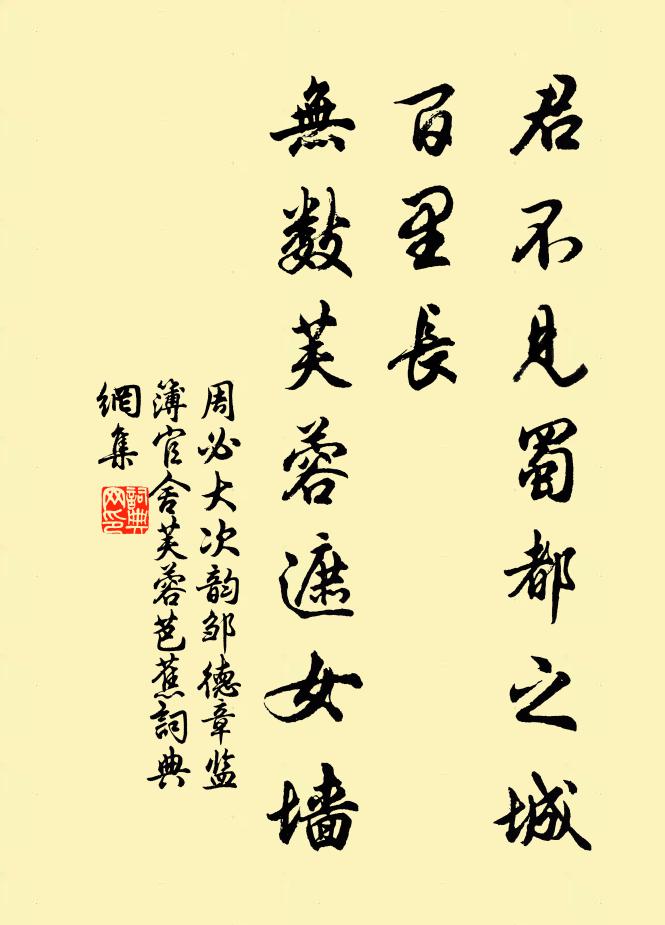 君不见蜀都之城
百里長
無数芙蓉遮女墙
周必大次韵邹德章监
簿官舍芙蓉芭蕉詞典
網集
詞典
网印